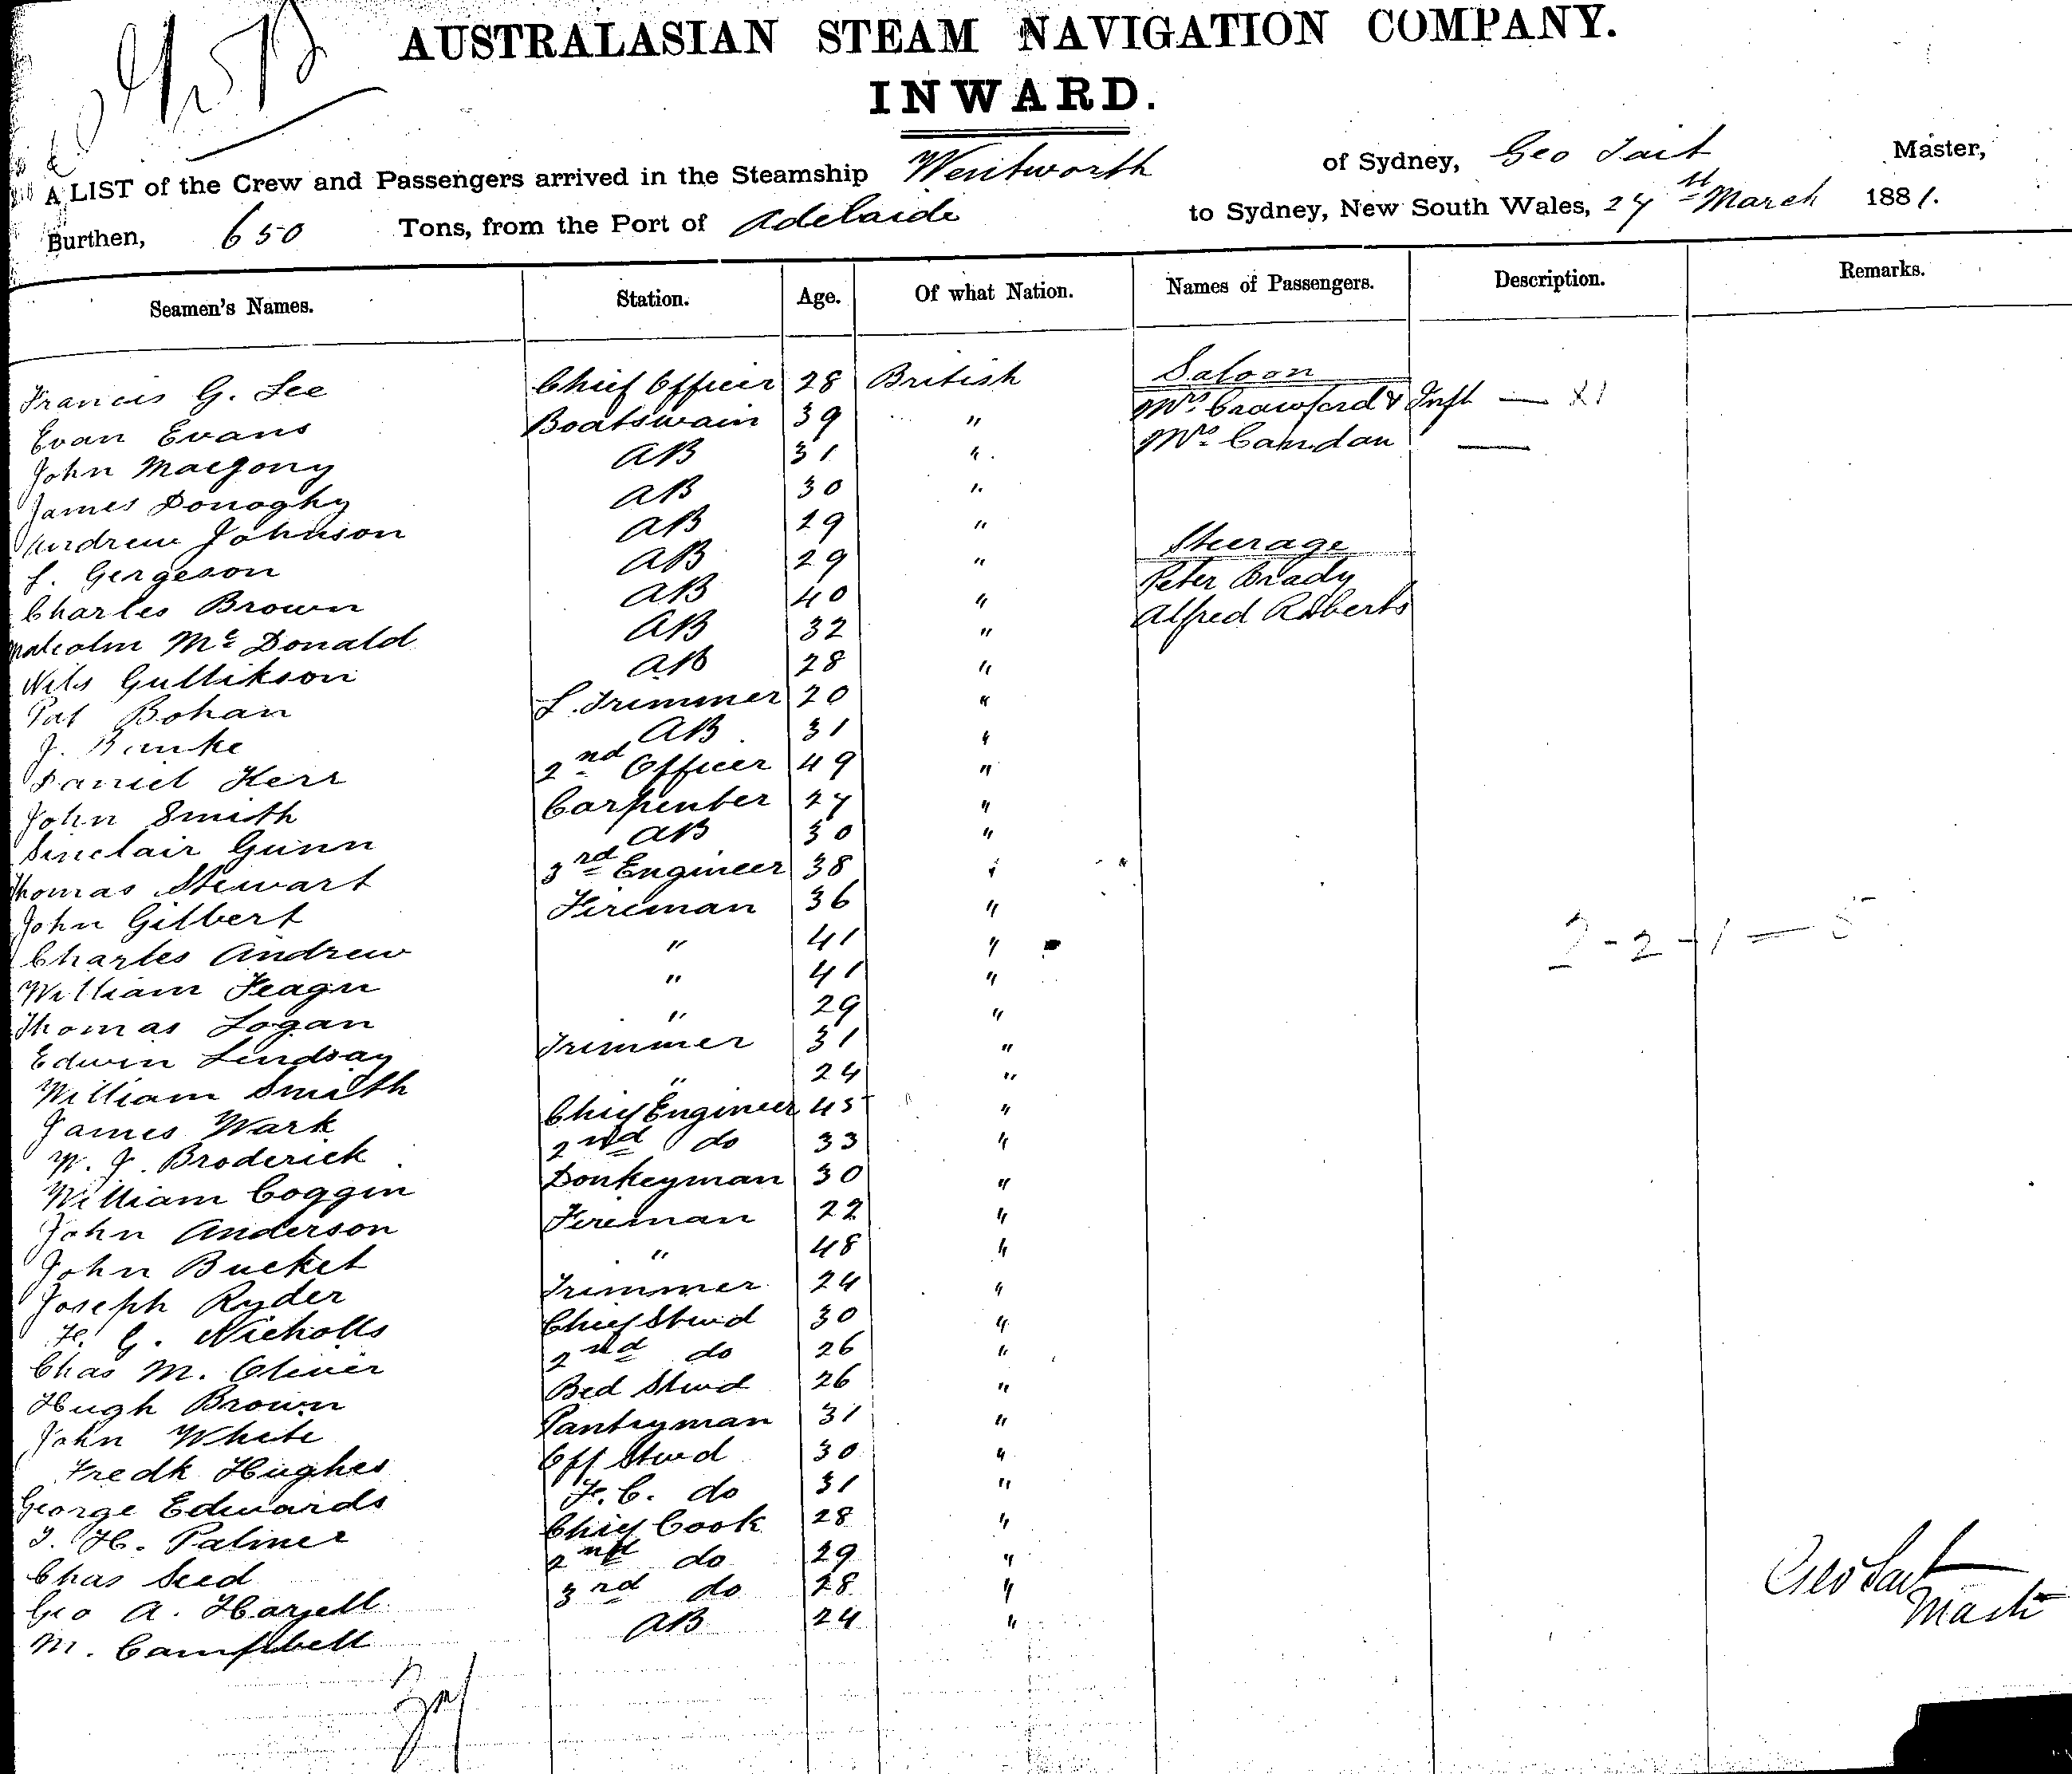 AUSTRALASIAN STEAM NAVIGATION COMPANY.
INWARD.
A LIST of the Crew and Passengers arrived in the Steamship Wentworth of Sydney, Geo Tait Master,
Burthen, 650 Tons, from the Port of Adelaide to Sydney, New South Wales, 24 st March 1881.
Seamen's Names. Station. Age. Of what Nation. Names of Passengers. Description. Remarks.
Saloon
Francis G. Lee Chief Officer 28 British Mrs Crawford & Inft — X1
Evan Evans Boatswain 39 " Mrs Camdan —
John Macgony AB 31 "
James Donaghy AB 30 "
Andrew Johnson AB 29 " Steerage
f. Gergeson AB 29 " Peter Brady
Charles Brown AB 40 " Alfred Roberts
Malcolm Mc Donald AB 32 "
Nils Gullikson AB 28 "
Pat Bohan L. Trimmer 20 "
J. Banke AB 31 "
Daniel Kerr 2nd Officer 49 "
John Smith Carpenter 27 "
Sinclair Gunn AB 30 "
Thomas Stewart 3rd Engineer 38 "
John Gilbert Fireman 36 "
Charles Andrew " 41 " 2 - 2 - 1 — 5
William Feagn " 41 "
Thomas Logan " 29 "
Edwin Lindsay Trimmer 31 "
William Smith " 24 "
James Wark Chief Engineer 45 "
W. J. Broderick 2nd do 33 "
William Coggin Donkeyman 30 "
John Anderson Fireman 22 "
John Bucket " 48 "
Joseph Ryder Trimmer 24 "
H. G. Nicholls Chief Stwd 30 "
Chas M. Oliver 2nd do 26 "
Hugh Brown Bed Stwd 26 "
John White Pantryman 31 "
Fredk Hughes Off Stwd 30 "
George Edwards F. C. do 31 "
T. H. Palmer Chief Cook 28 "
Chas Seed 2nd do 29 "
Geo A. Hazell 3rd do 28 "
M. Campbell AB 24 "
Geo Tait
Mastr